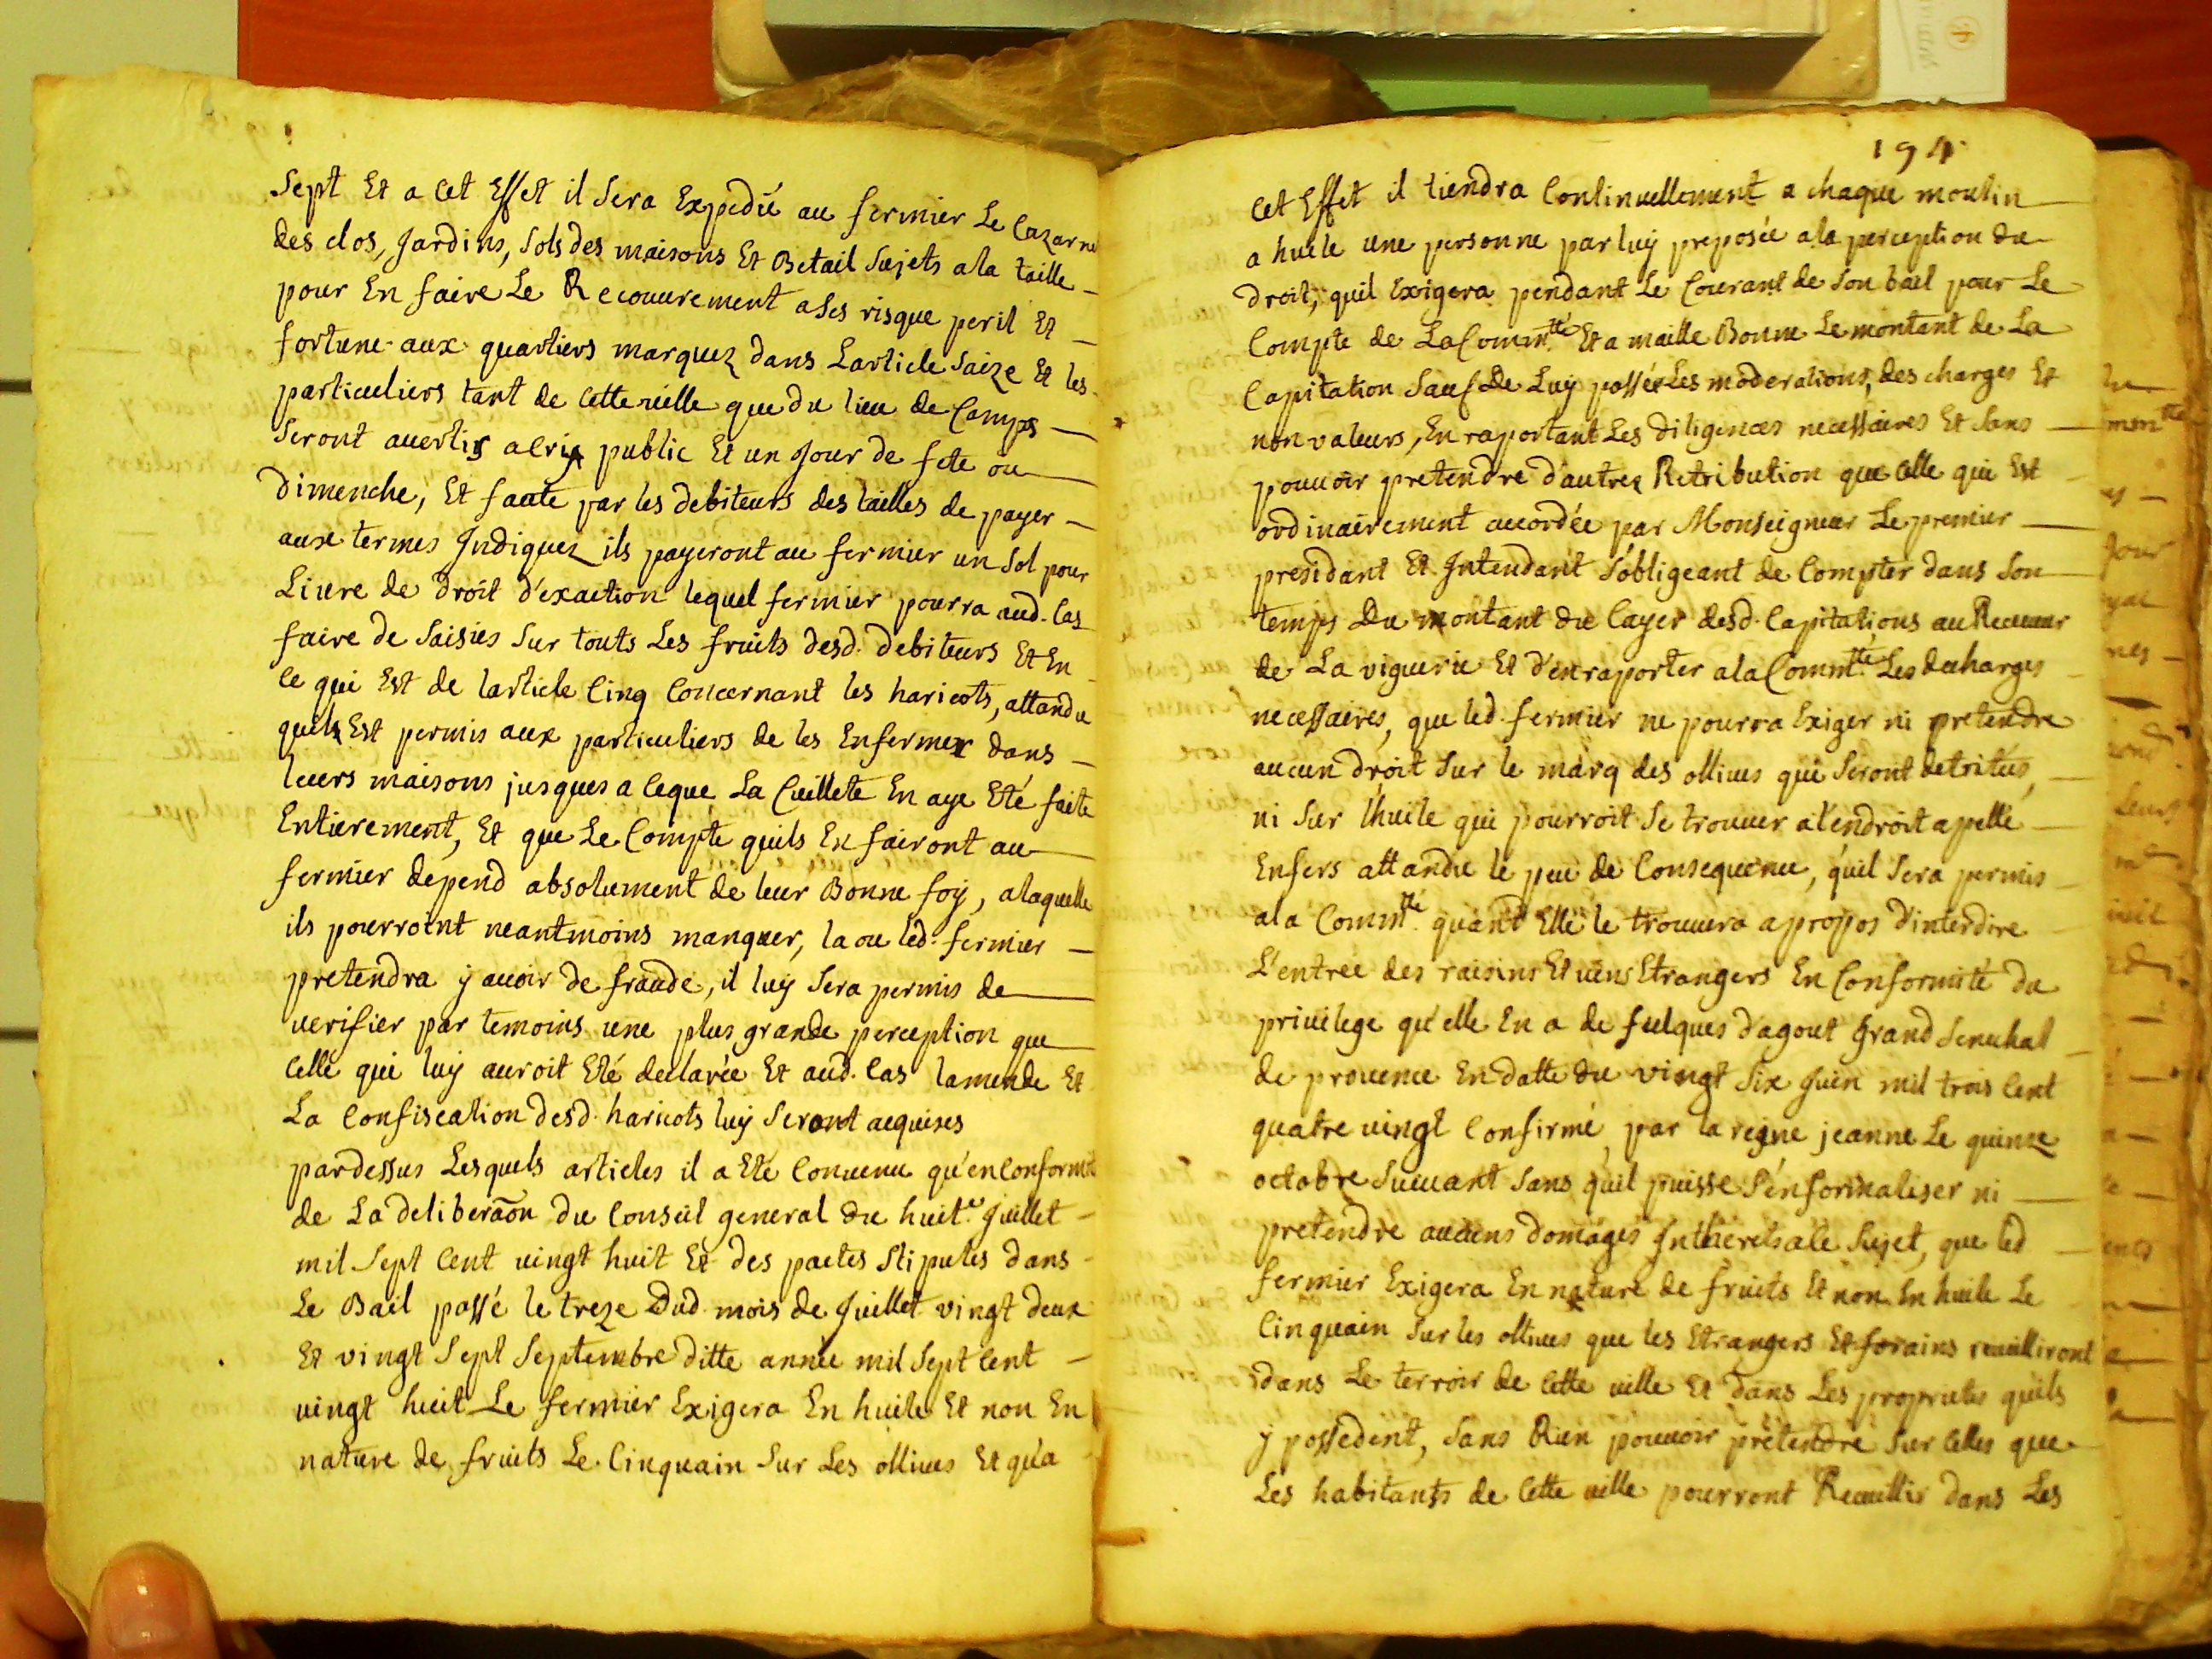 Sept Et a Cet Effet il Sera Expedié au fermier Le Cazarne
des clos, Jardins, Sols des maisons Et Betail Sujets a la taille
pour En faire Le Recouurement a Ses risque peril Et
fortune aux quartiers marquez dans Larticle Saize Et les
particuliers tant de Cette uille que du lieu de Camps
Seront auertis a Cris public Et un Jour de fete ou
dimenche, Et faute par les debiteurs des tailles de payer
aux termes Indiquez ils payeront au fermier un Sol pour
Liure de droit d'exaction lequel fermier pourra aud. Cas
faire de Saisies Sur touts Les fruits desd. debiteurs Et En
Ce qui Est de larticle Cinq Concernant les haricots, attandu
quils Est permis aux particuliers de les Enfermer dans
leurs maisons jusques a Ceque La Cuillete En aye Eté faite
Entierement, Et que Le Compte quils En fairont au
fermier depend absolument de leur Bonne foy, a laquelle
ils pourroint neantmoins manquer, la ou led. fermier
pretendra y auoir de fraude, il luy Sera permis de
uerifier par temoins une plus grande perception que
Celle qui luy auroit Eté declarée Et aud. Cas lamende Et
La Confiscation desd. haricots luy Seront acquises
pardessus Lesquels articles il a Eté Conuenu qu'en Conformité
de La deliberãon du Conseil general du huit.e Juillet
mil Sept Cent uingt huit Et des pactes Stipulés dans
Le Bail passé le treze Dud. mois de Juillet vingt deux
Et vingt Sept Septembre ditte année mil Sept Cent
uingt huit Le fermier Exigera En huile Et non En
nature de fruits Le Cinquain Sur Les olliues Et qu'a
194
Cet Effet il tiendra Continuellement a chaque moulin
a huile une personne par luy preposée a la perception du
droit, quil Exigera pendant Le Courant de Son bail pour Le
Compte de La Comm.té Et a maille Bonne Le montant de La
Capitation Sauf De Luy passer Les moderations, des charges Et
non valeurs, En raportant Les diligences necessaires Et Sans
pouuoir pretendre d'autres Retribution que Celle qui Est
ordinairement accordée par Monseigneur Le premier
presidant Et Intendant S'obligeant de Compter dans Son
temps Du montant du Cayer desd. Capitations au Receueur
de La viguerie Et d'en raporter a la Comm.té Les decharges
necessaires, que led. fermier ne pourra Exiger ni pretendre
aucun droit Sur le marq des olliues qui Seront detritées,
ni Sur l'huile qui pourroit Se trouuer a l'endroit apellé
Enfers attandu le peu de Consequence, quil Sera permis
a la Comm.té quant Elle le trouuera a propos d'interdire
L'entrée des raisins Et uins Etrangers En Conformité du
priuilege qu'elle En a de fulques d'agout grand Senechal
de prouence En datte du vingt Six Juin mil trois Cent
quatre uingt Confirmé par la reyne jeanne Le quinze
octobre Suiuant Sans quil puisse S'enformaliser ni
pretendre aucuns domages Inthérets a Ce Sujet, que led
fermier Exigera En nature de fruits Et non En huile Le
Cinquain Sur les olliues que les Etrangers Et forains recuilliront
dans Le terroir de Cette uille Et dans Les proprietes quils
y possedent, Sans Rien pouuoir prétendre Sur Celles que
Les habitants de Cette uille pourront Recuillir dans Les